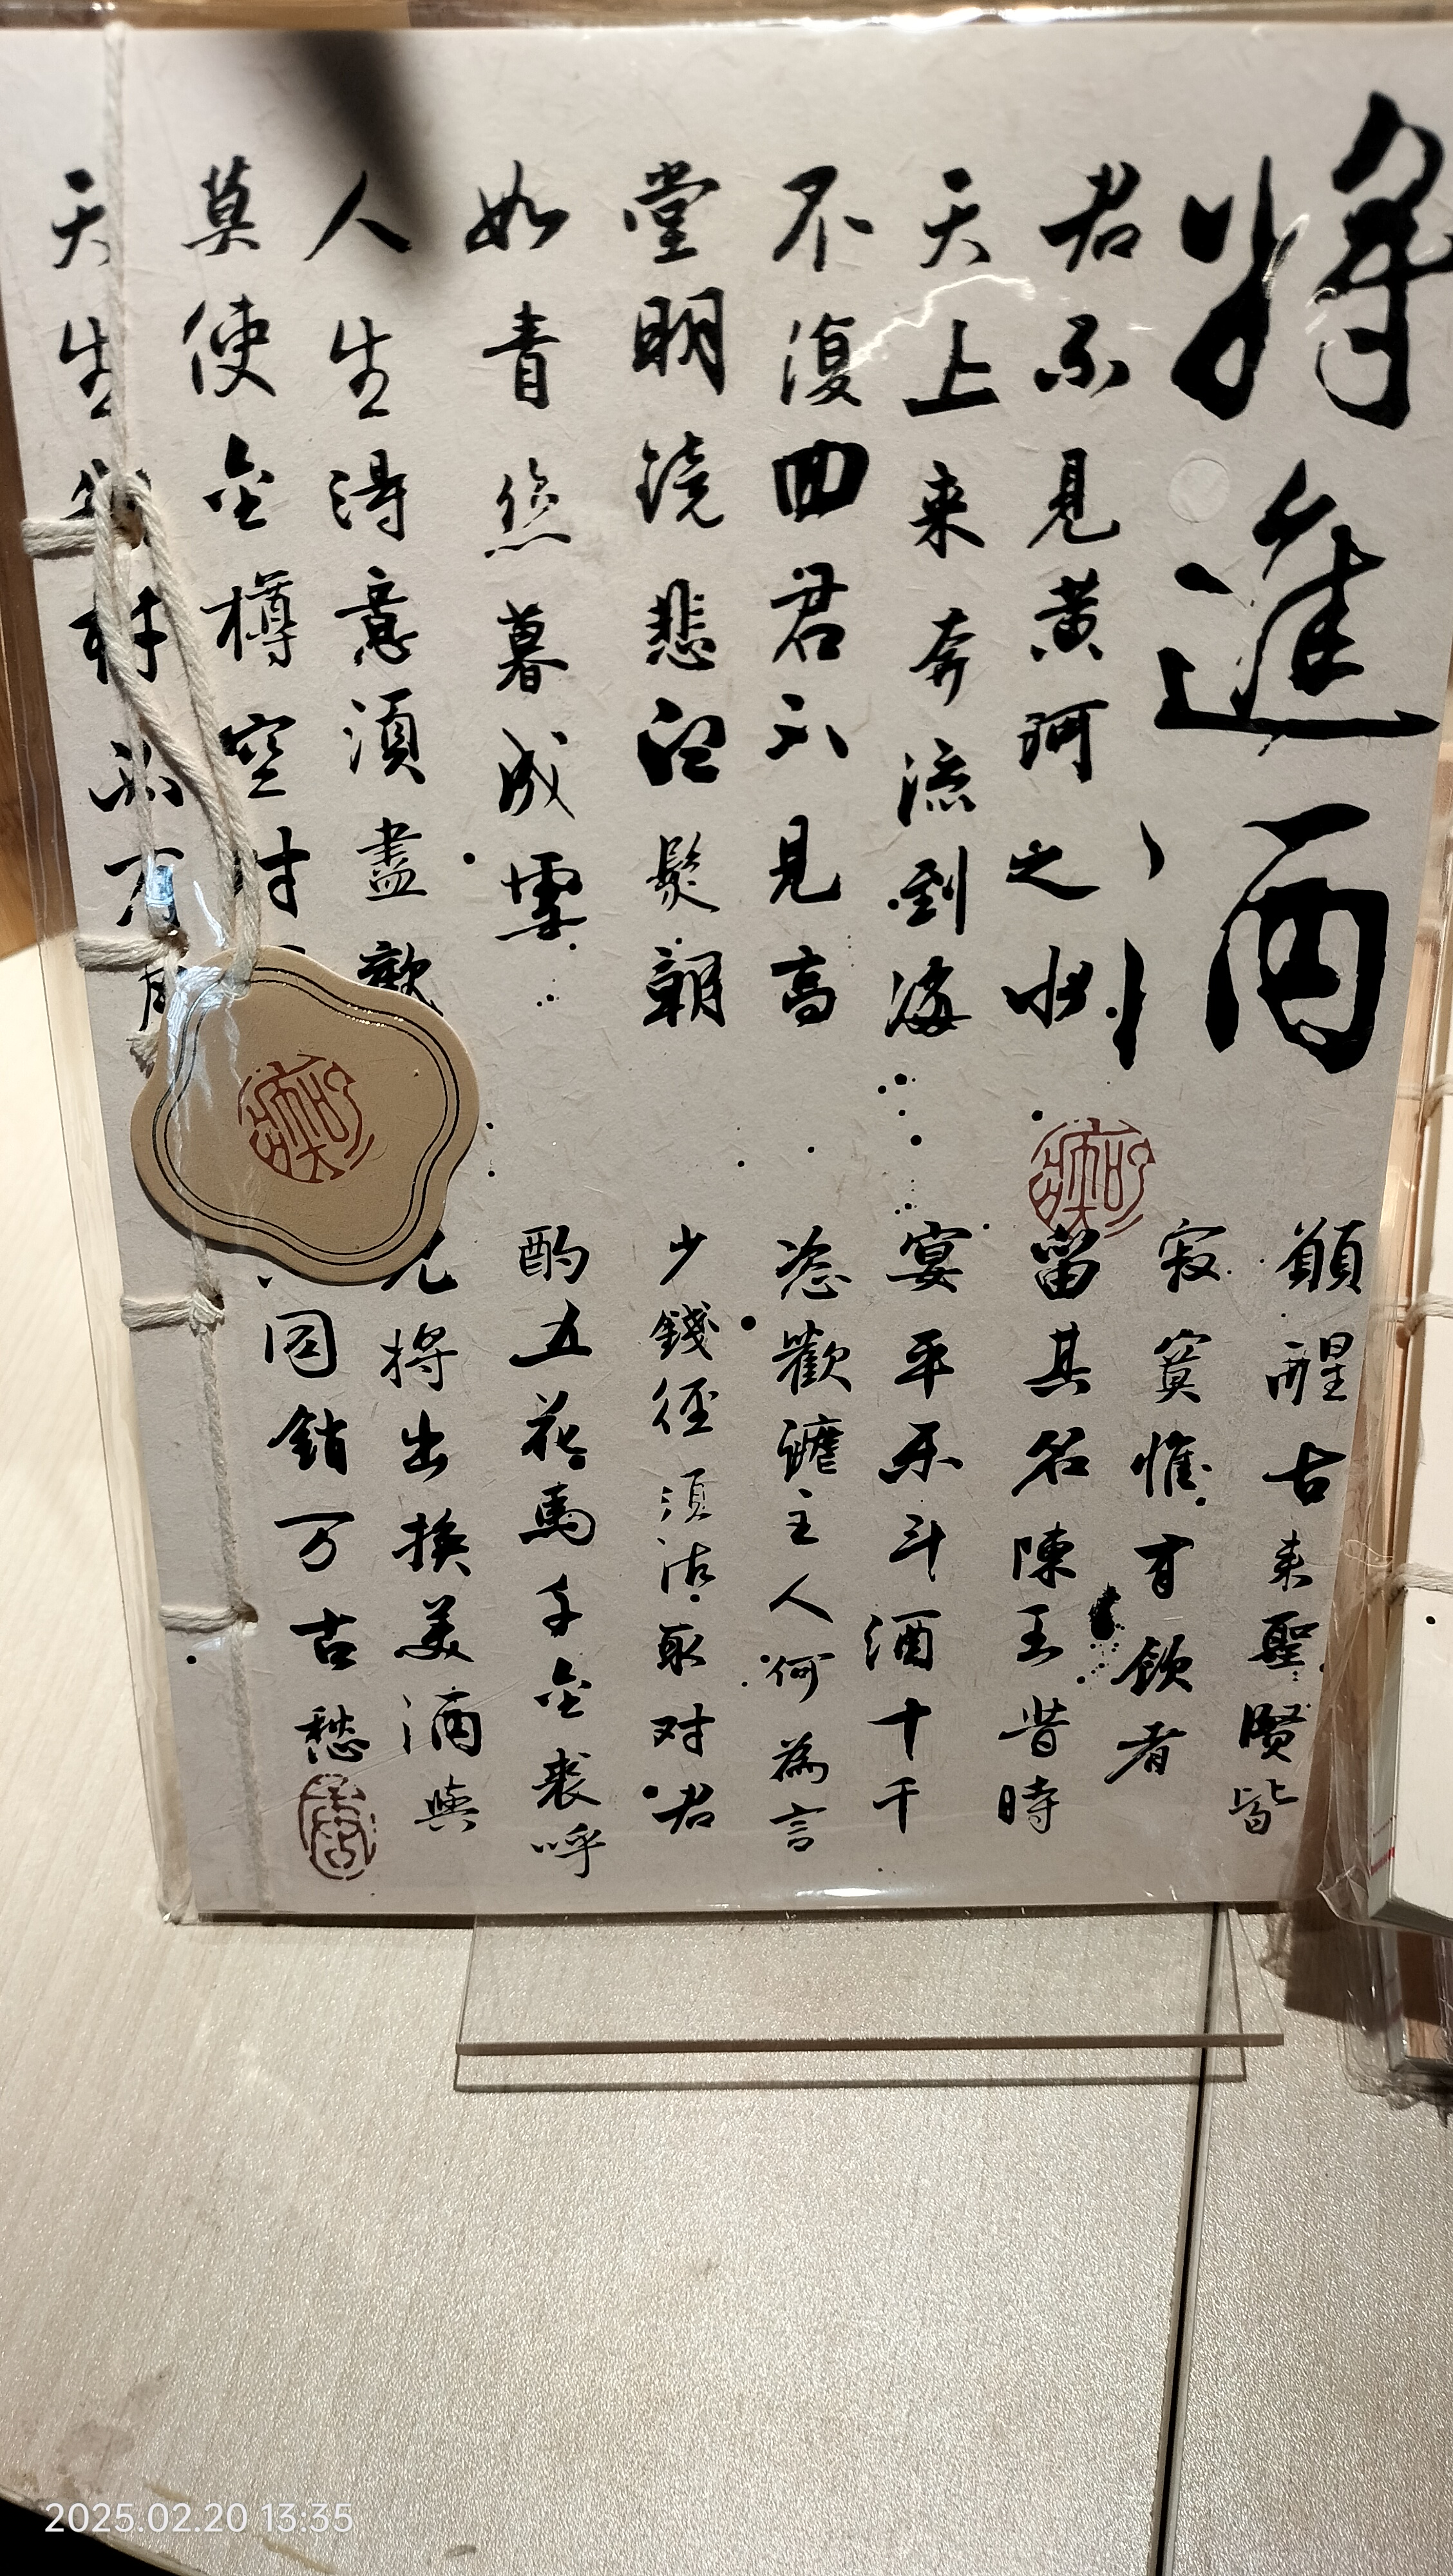 將進酒
君不見黃河之水
天上来奔流到海
不復回君不見高
堂明鏡悲白髮朝
如青絲暮成雪
人生得意須盡歡
莫使金樽空对
天生我材必有用
願醒古来聖賢皆
寂寞惟有飲者
留其名陳王昔時
宴平乐斗酒十千
恣歡謔主人何為言
少錢徑須沽取对君
酌五花馬千金裘呼
児将出换美酒與
同銷万古愁
2025.02.20 13:35